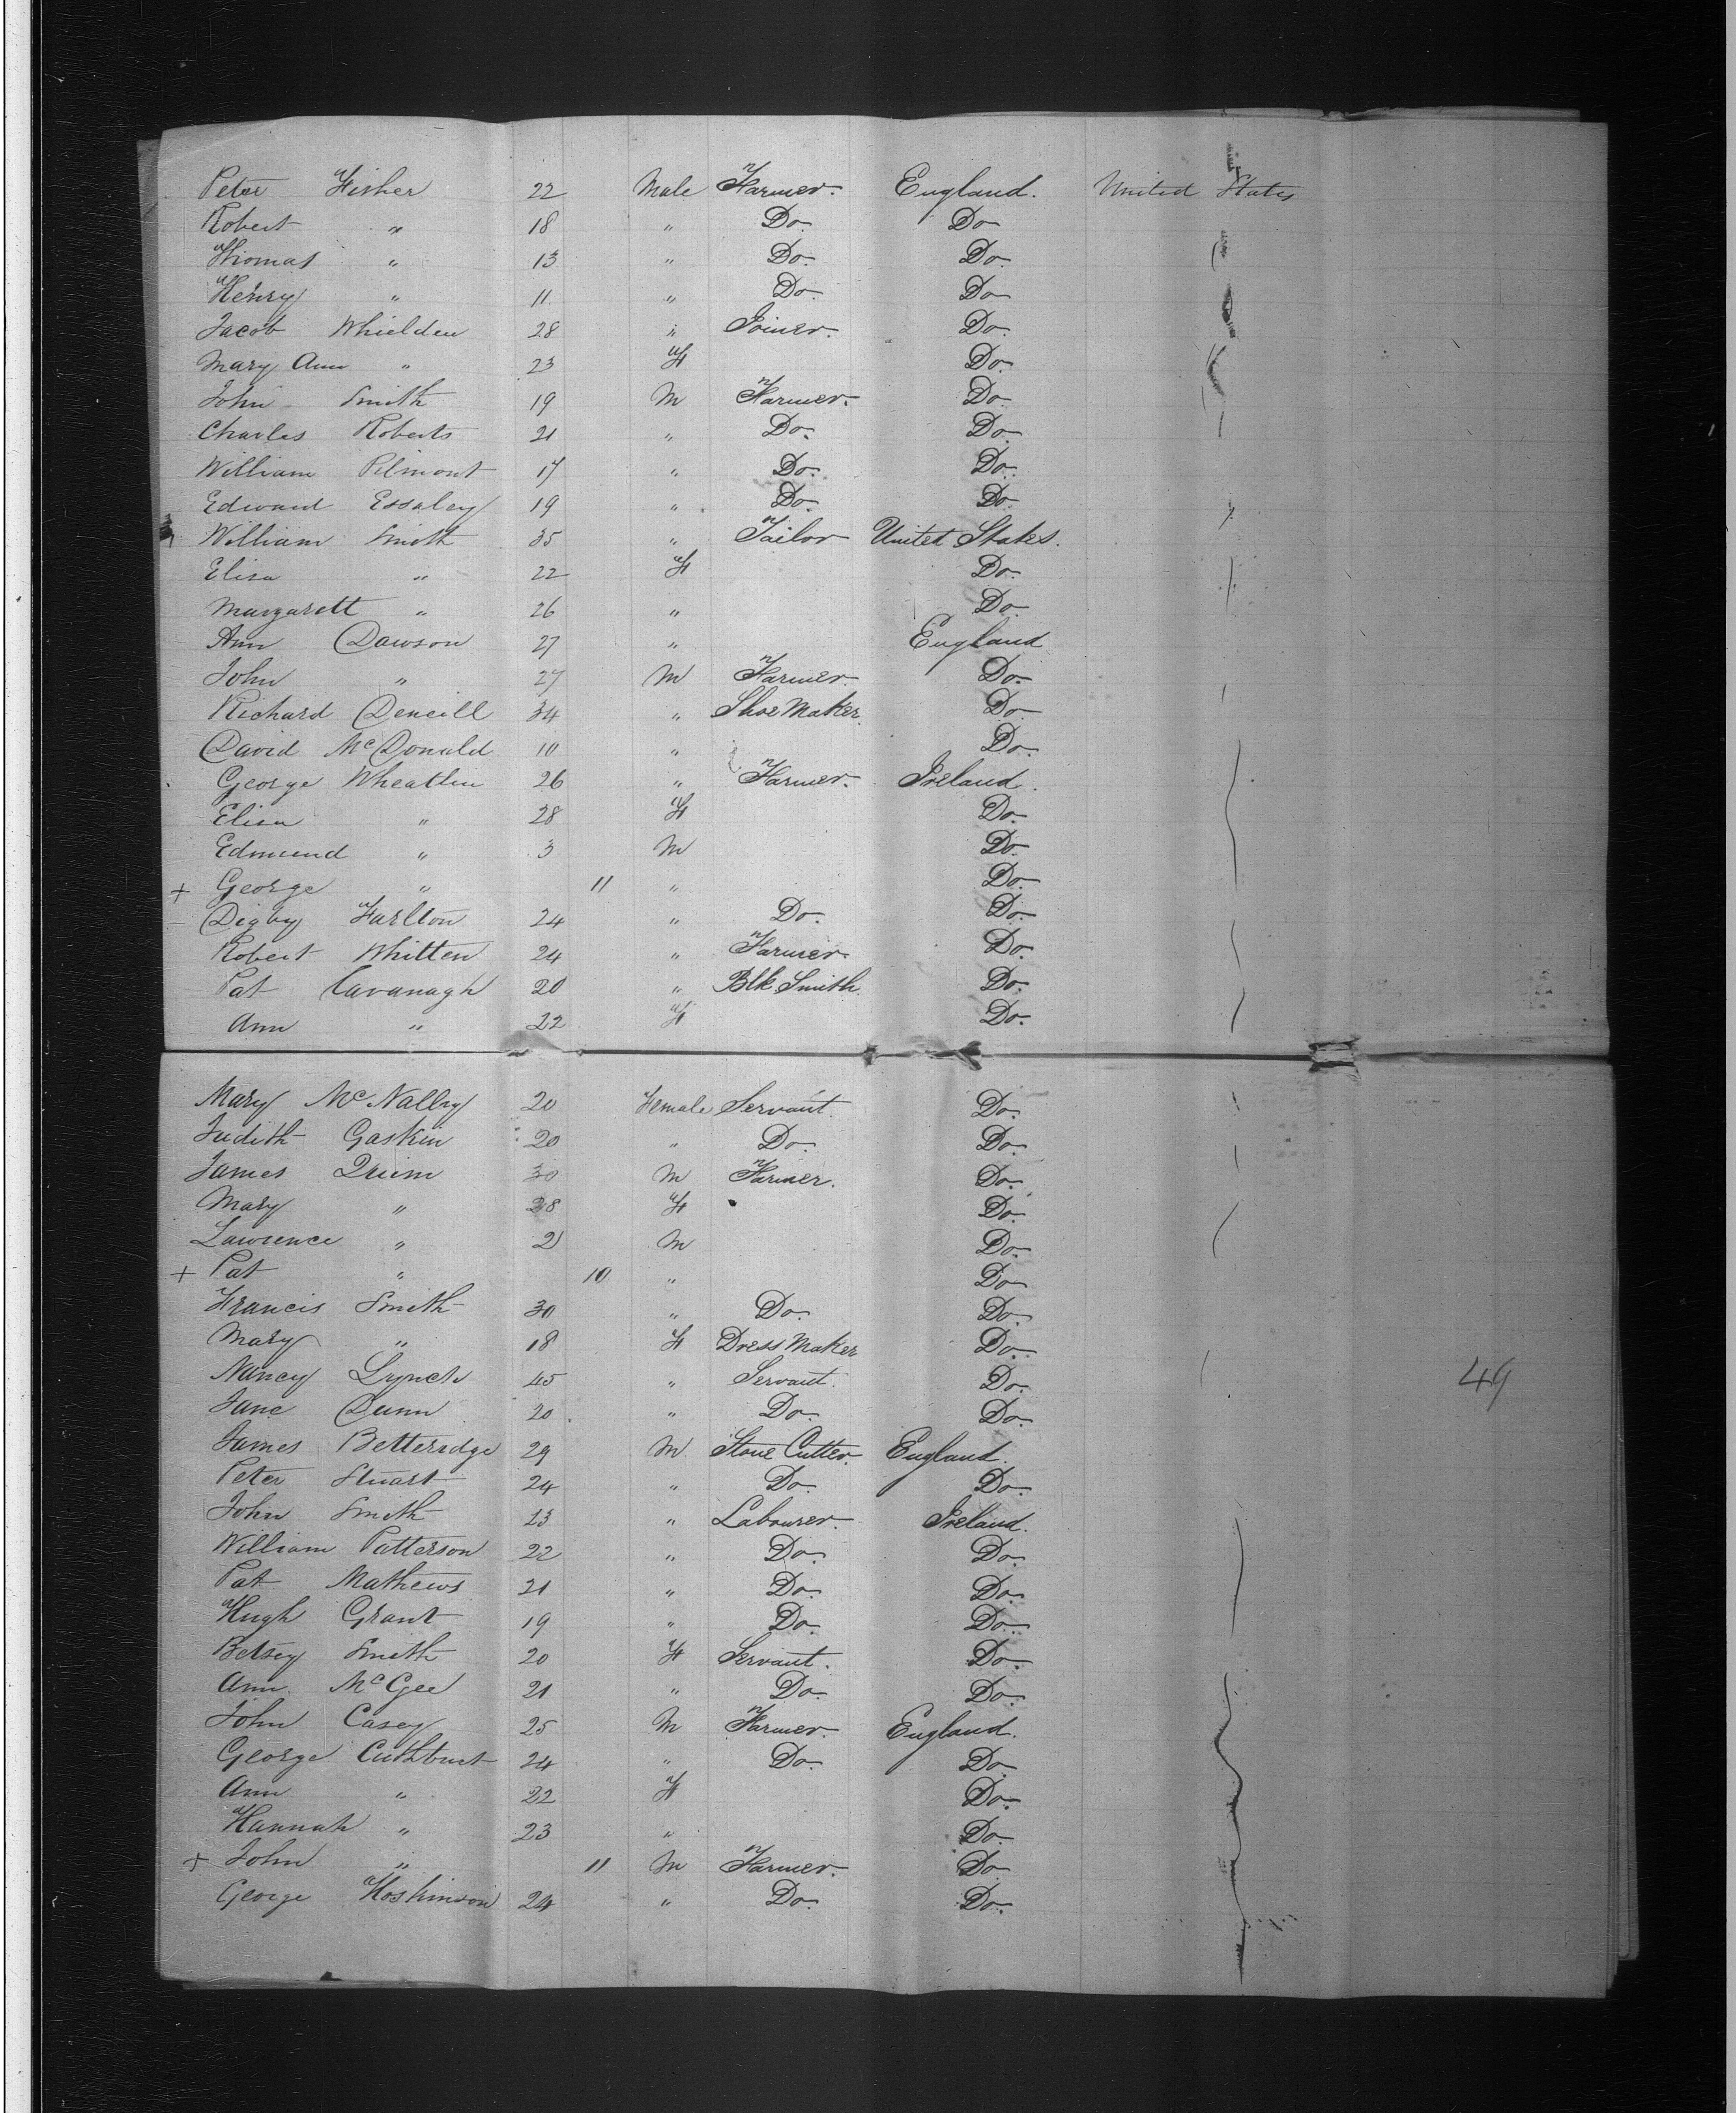 Peter Fisher 22 Male Farmer. England. United States
Robert " 18 " Do. Do
Thomas " 13 " Do. Do.
Henry " 11 " Do. Do
Jacob Whielden 28 " Joiner. Do.
Mary Ann " 23 F Do.
John Smith 19 M Farmer. Do.
Charles Roberts 21 " Do. Do.
William Pilmont 17 " Do. Do.
Edward Essaley 19 " Do. Do.
William Smith 35 " Tailor United States.
Elisa " 22 F Do.
Margarett " 26 " Do.
Ann Dawson 27 " England
John " 27 M Farmer. Do.
Richard Deneill 34 " Shoe Maker. Do.
David McDonald 10 " Do.
George Wheatlin 26 " Farmer. Ireland.
Elisa " 28 F Do.
Edmund " 3 M Do.
+ George " 11 " Do.
Digby Farlton 24 " Do. Do.
Robert Whitten 24 " Farmer. Do.
Pat Cavanagh 20 " Blk. Smith. Do.
Ann " 22 F Do.
Mary McNally 20 Female Servant. Do.
Judith Gaskin 20 " Do. Do.
James Quinn 30 M Farmer. Do.
Mary " 28 F Do.
Lawrence " 2 M Do.
+ Pat " 10 " Do
Francis Smith 30 " Do. Do.
Mary " 18 F Dress Maker Do.
Nancy Lynch 45 " Servant. Do.
49
Jane Dunn 20 " Do. Do.
James Betteridge 29 M Stone Cutter. England.
Peter Stuart 24 " Do. Do.
John Smith 23 " Labourer. Ireland.
William Patterson 22 " Do. Do.
Pat Mathews 21 " Do. Do.
Hugh Grant 19 " Do. Do.
Betsey Smith 20 F Servant. Do.
Ann McGee 21 " Do. Do.
John Casey 25 M Farmer. England.
George Cuthburt 24 " Do. Do.
Ann " 22 F Do.
Hannah " 23 " Do.
+ John " 11 M Farmer. Do
George Hoskinson 24 " Do. Do.